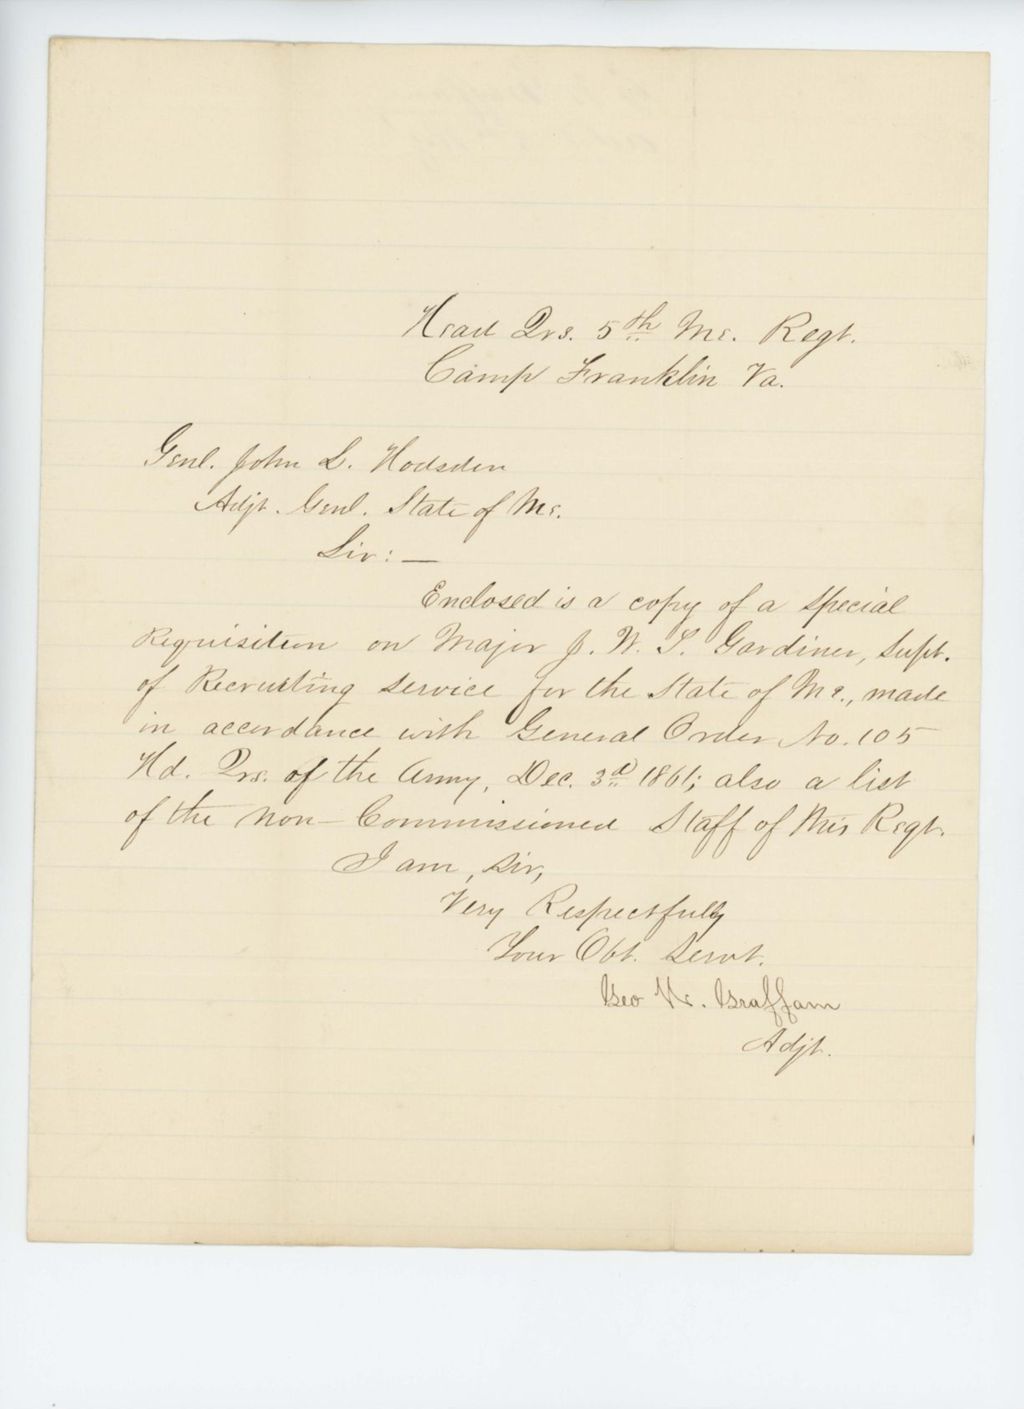 Head Qrs. 5th Me. Regt.
Camp Franklin Va.
Genl. John L. Hodsden
Adjt. Genl. State of Me.
Sir: —
Enclosed is a copy of a Special
Requisition on Major J. W. T. Gardiner, Supt.
of Recruiting Service for the State of Me., made
in accordance with General Order No. 105
Hd. Qrs. of the Army, Dec. 3d 1861; also a list
of the Non-Commissioned Staff of this Regt.
I am, Sir,
Very Respectfully
Your Obt. Servt.
Geo W. Graffam
Adjt.